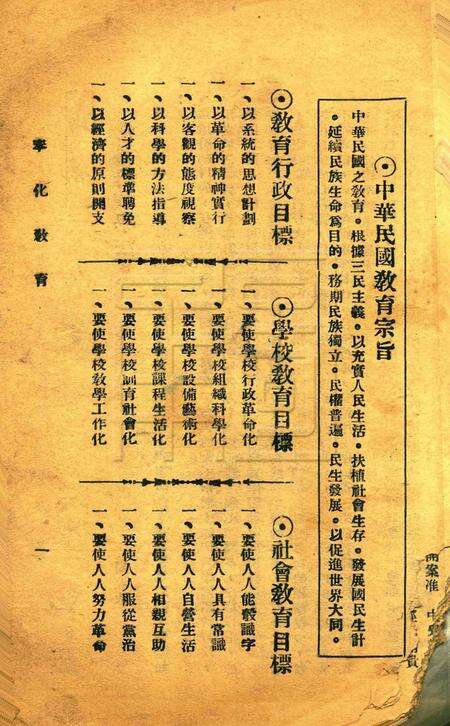 ⊙中華民國教育宗旨
中華民國之教育。根據三民主義。以充實人民生活。扶植社會生存。發展國民生計
。延續民族生命爲目的。務期民族獨立。民權普遍。民生發展。以促進世界大同。
⊙教育行政目標
一、以系統的思想計劃
一、以革命的精神實行
一、以客觀的態度視察
一、以科學的方法指導
一、以人才的標準聘免
一、以經濟的原則開支
⊙學校教育目標
一、要使學校行政革命化
一、要使學校組織科學化
一、要使學校設備藝術化
一、要使學校課程生活化
一、要使學校訓育社會化
一、要使學校教學工作化
⊙社會教育目標
一、要使人人能彀識字
一、要使人人具有常識
一、要使人人自營生活
一、要使人人相親互助
一、要使人人服從黨治
一、要使人人努力革命
奉化教育
一